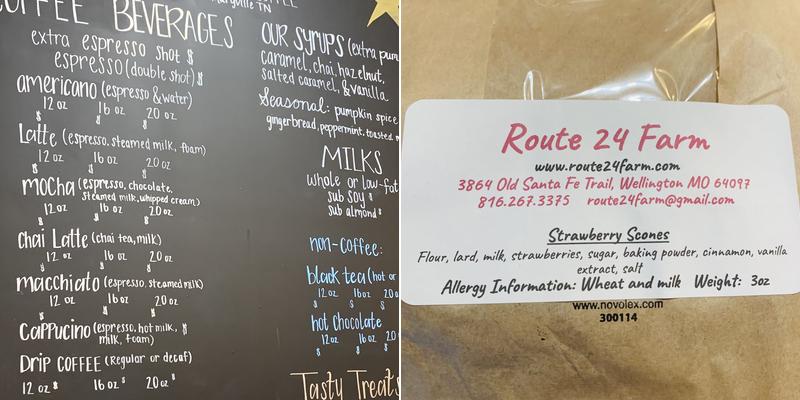 COFFEE BEVERAGES
extra espresso shot $
espresso (double shot) $
americano (espresso & water)
12 oz 16 oz 20 oz
$ $ $
Latte (espresso, steamed milk, foam)
12 oz 16 oz 20 oz
$ $ $
mocha (espresso, chocolate,
steamed milk, whipped cream)
12 oz 16 oz 20 oz
$ $ $
chai Latte (chai tea, milk)
12 oz 16 oz 20 oz
$ $ $
macchiato (espresso, steamed milk)
12 oz 16 oz 20 oz
$ $ $
Cappucino (espresso, hot milk, $
milk, foam)
DRIP COFFEE (Regular or decaf)
12 oz $ 16 oz $ 20 oz $
Maryville TN
OUR SYRUPS (extra pum
caramel, chai, hazelnut,
salted caramel, & vanilla
Seasonal: pumpkin spice
gingerbread, peppermint, toasted m
MILKS
whole or low-fat
sub soy $
sub almond $
non-coffee:
black tea (hot or
12 oz 16 oz 20 o
$ $ $
hot chocolate
12 oz 16 oz 20
$ $ $
Tasty Treats
Route 24 Farm
www.route24farm.com
3864 Old Santa Fe Trail, Wellington MO 64097
816.267.3375 route24farm@gmail.com
Strawberry Scones
Flour, lard, milk, strawberries, sugar, baking powder, cinnamon, vanilla
extract, salt
Allergy Information: Wheat and milk Weight: 3oz
www.novolex.com
300114